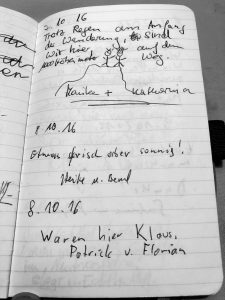 2.10.16
Trotz Regen am Anfang
der Wanderung, sind
wir hier, auf dem
Weg.
Monika + Katharina
8.10.16
Etwas frisch aber sonnig!
Heike u. Bernd
8.10.16
Waren hier Klaus,
Patrick u. Florian